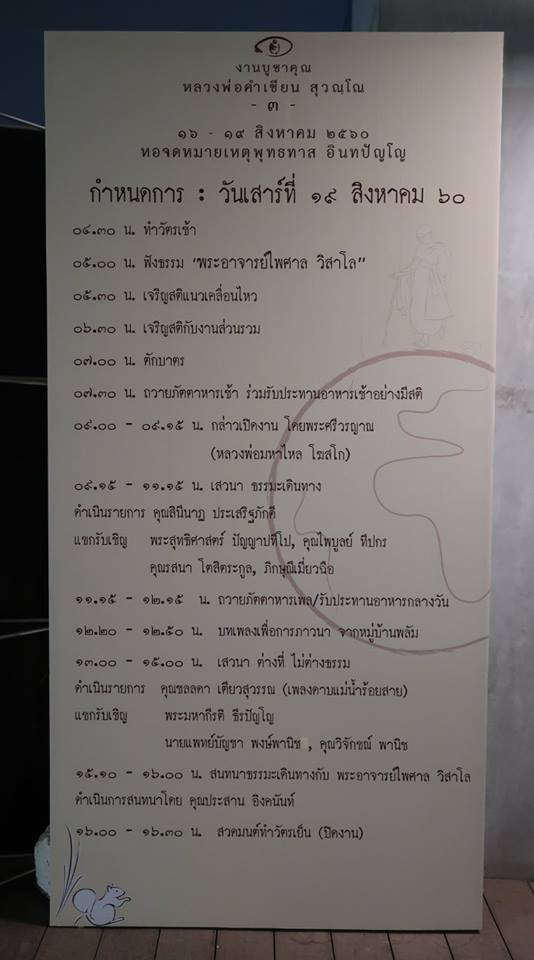 งานบูชาคุณ
หลวงพ่อคำเขียน สุวณฺโณ
- ๓ -
๑๖ - ๑๙ สิงหาคม ๒๕๖๐
หอจดหมายเหตุพุทธทาส อินทปัญโญ
กำหนดการ : วันเสาร์ที่ ๑๙ สิงหาคม ๖๐
๐๔.๓๐ น. ทำวัตรเช้า
๐๕.๐๐ น. ฟังธรรม "พระอาจารย์ไพศาล วิสาโล"
๐๕.๓๐ น. เจริญสติแนวเคลื่อนไหว
๐๖.๓๐ น. เจริญสติกับงานส่วนรวม
๐๗.๐๐ น. ตักบาตร
๐๗.๓๐ น. ถวายภัตตาหารเช้า ร่วมรับประทานอาหารเช้าอย่างมีสติ
๐๙.๐๐ - ๐๙.๑๕ น. กล่าวเปิดงาน โดยพระศรีวรญาณ
(หลวงพ่อมหาไหล โฆสโก)
๐๙.๑๕ - ๑๑.๑๕ น. เสวนา ธรรมะเดินทาง
ดำเนินรายการ คุณสินีนาฏ ประเสริฐภักดี
แขกรับเชิญ พระสุทธิศาสตร์ ปัญญาปทีโป, คุณไพบูลย์ ทีปกร
คุณรสนา โตสิตระกูล, ภิกษุณีเมี่ยวฉือ
๑๑.๑๕ - ๑๒.๑๕ น. ถวายภัตตาหารเพล/รับประทานอาหารกลางวัน
๑๒.๒๐ - ๑๒.๕๐ น. บทเพลงเพื่อการภาวนา จากหมู่บ้านพลัม
๑๓.๐๐ - ๑๕.๐๐ น. เสวนา ต่างที่ ไม่ต่างธรรม
ดำเนินรายการ คุณชลลดา เตียวสุวรรณ (เพลงดาบแม่น้ำร้อยสาย)
แขกรับเชิญ พระมหากีรติ ธีรปัญโญ
นายแพทย์บัญชา พงษ์พานิช , คุณวิจักขณ์ พานิช
๑๕.๑๐ - ๑๖.๐๐ น. สนทนาธรรมะเดินทางกับ พระอาจารย์ไพศาล วิสาโล
ดำเนินการสนทนาโดย คุณประสาน อิงคนันท์
๑๖.๐๐ - ๑๖.๓๐ น. สวดมนต์ทำวัตรเย็น (ปิดงาน)